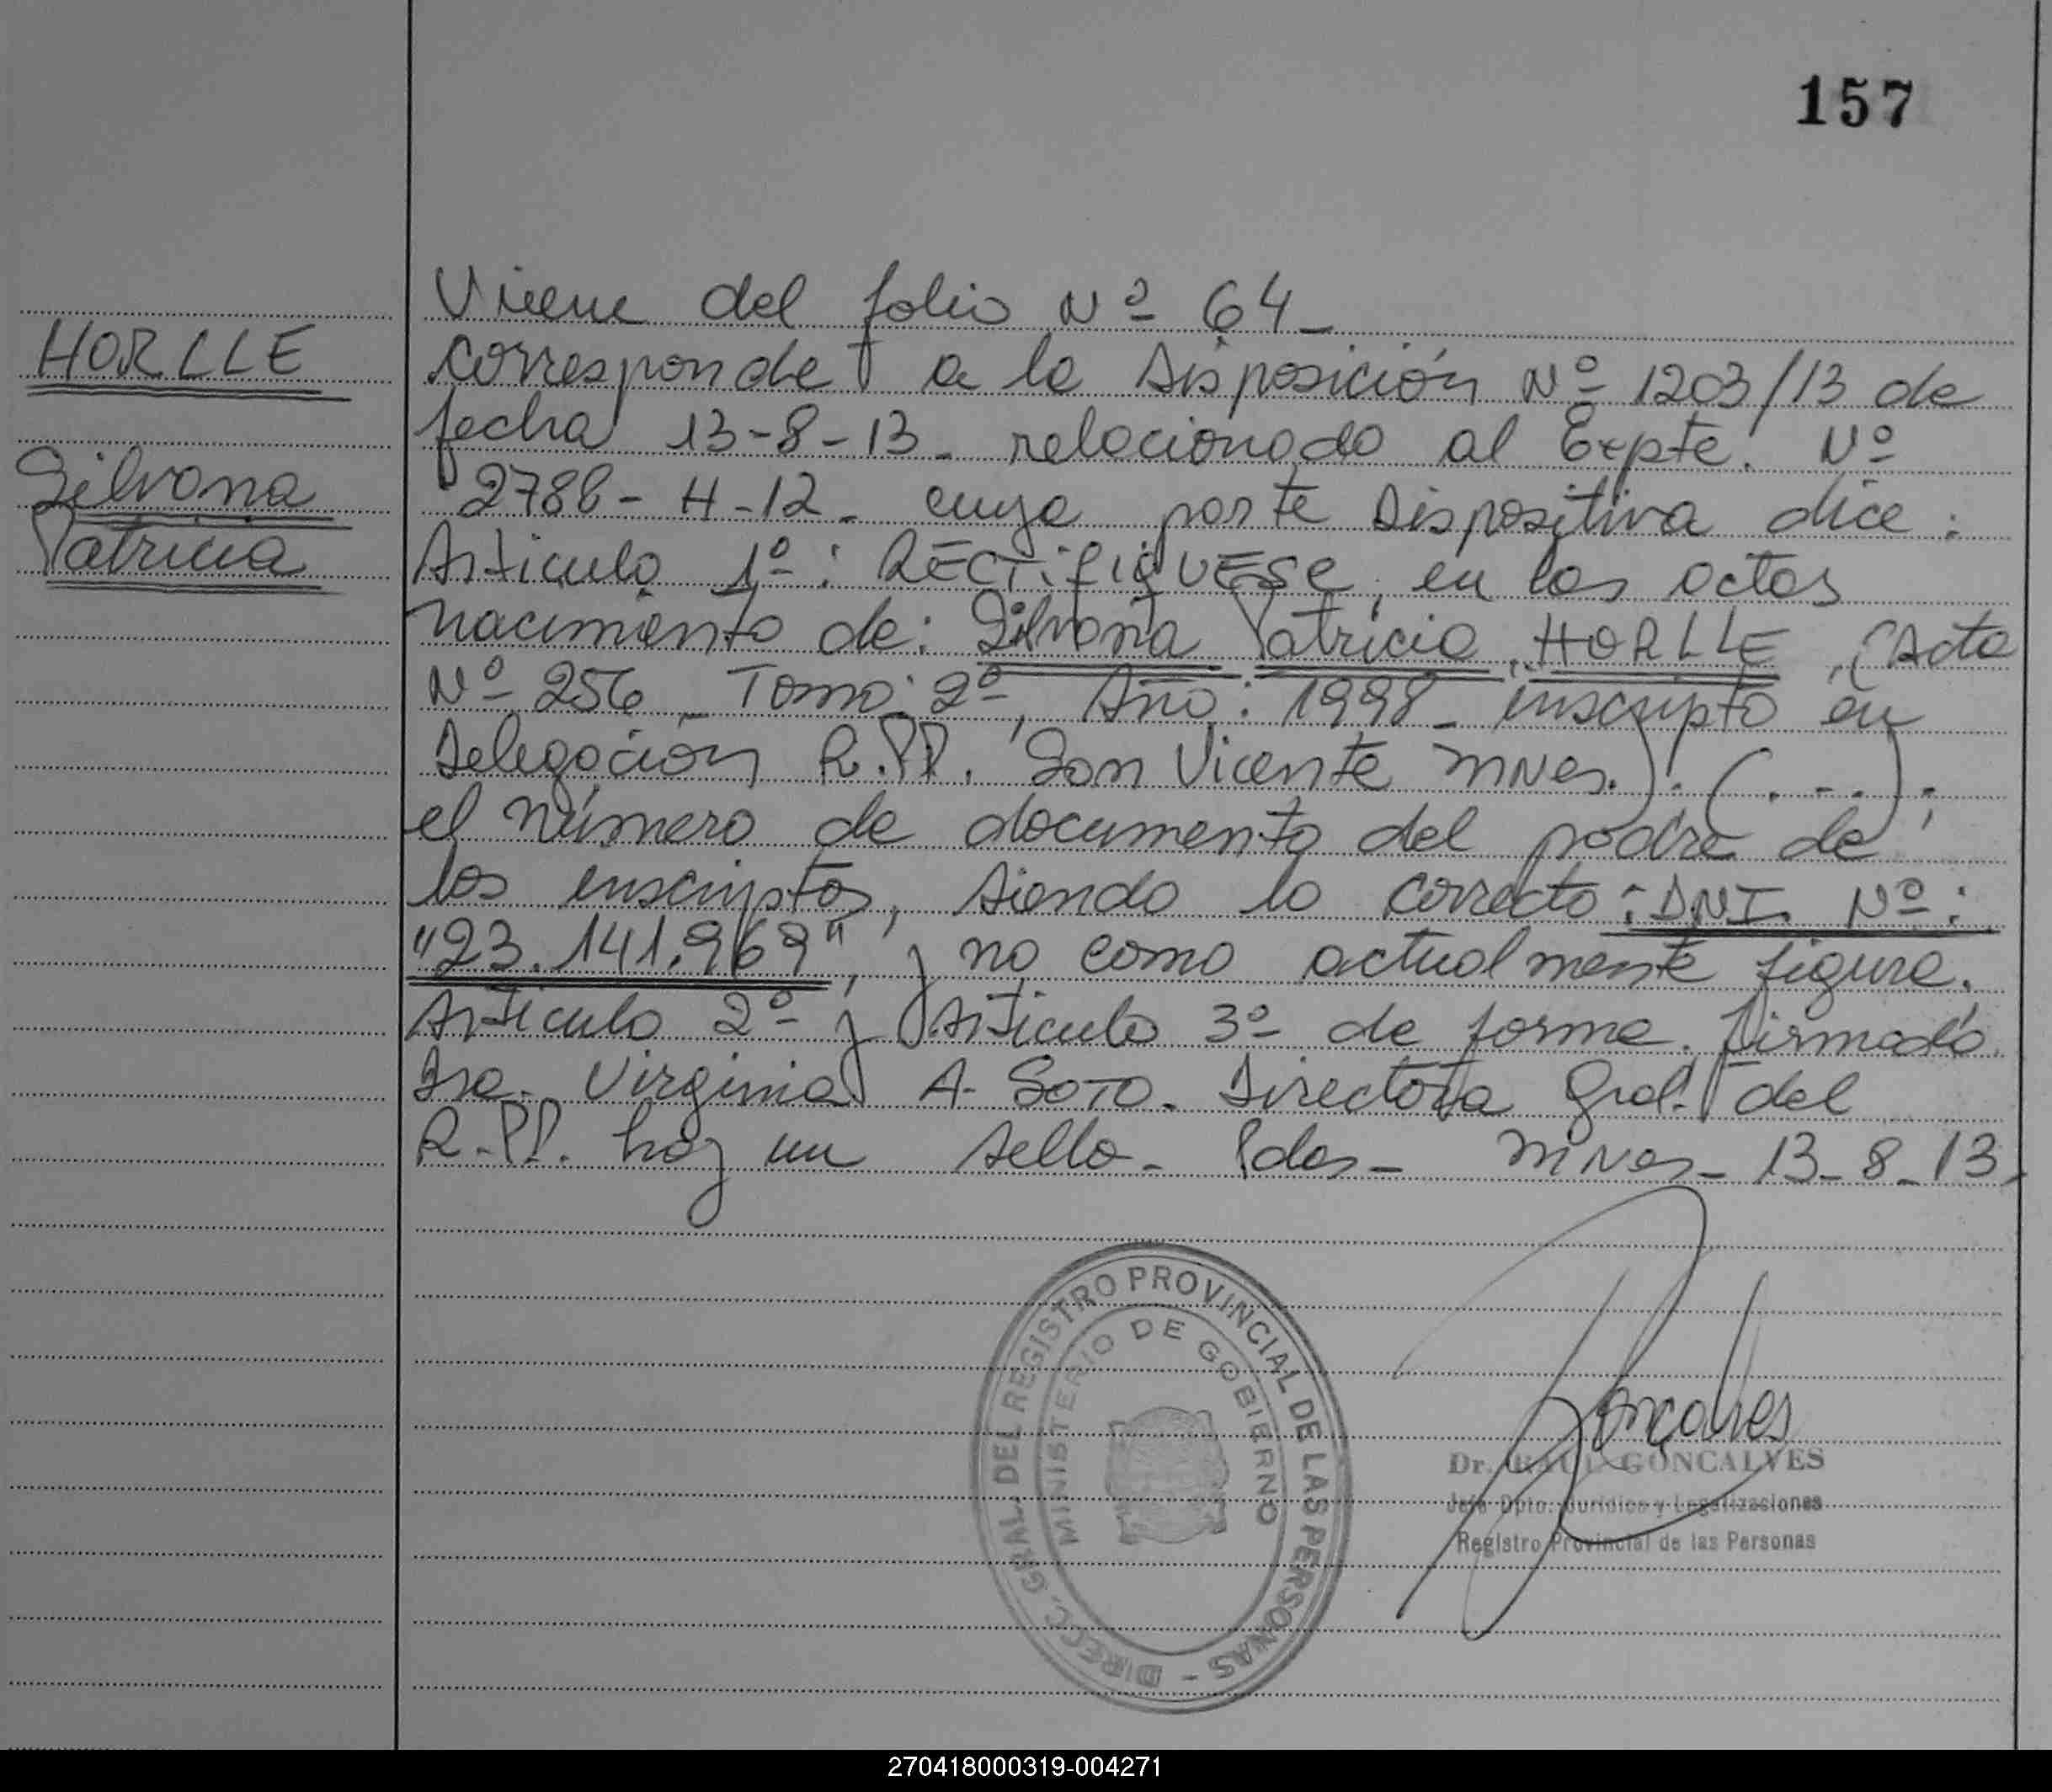 157
HORLLE
Silvana
Patricia
Viene del folio Nº 64_
corresponde a la Disposición Nº 1203/13 de
fecha 13-8-13_ relacionado al Expte. Nº
2786-H-12_ cuya parte Dispositiva dice:
Articulo 1º: RECTIFIQUESE, en las actas
nacimiento de: Silvana Patricia HORLLE, (Acta
Nº 256_ Tomo: 2º, Año: 1998_ inscripto en
Delegación R.PP. San Vicente Mnes.). (...).
el número de documento del padre de
los inscriptos, siendo lo correcto: DNI. Nº:
"23.141.969", y no como actualmente figura.
Articulo 2º y Articulo 3º de forma. Firmado
Dra. Virginia A. SOTO. Directora Gral. del
R.PP. hay un sello_ Pdas_ Mnes_ 13-8-13,
DIRECC. GRAL. DEL REGISTRO PROVINCIAL DE LAS PERSONAS -
MINISTERIO DE GOBIERNO
Gonçalves
Dr. RAUL GONCALVES
Jefe Dpto. Juridico y Legalizaciones
Registro Provincial de las Personas
270418000319-004271